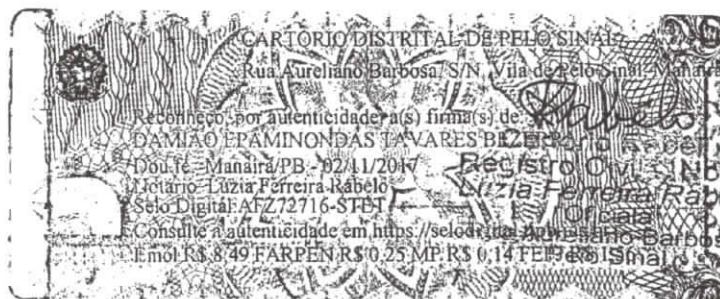 CARTÓRIO DISTRITAL DE PELO SINAL
Rua Aureliano Barbosa, S/N, Vila de Pelo Sinal - Manaíra
Reconheço, por autenticidade a(s) firma(s) de:
DAMIÃO EPAMINONDAS TAVARES BEZERRA
Dou fé. Manaíra/PB, 02/11/2017
Notário Luzia Ferreira Rabelo
Selo Digital: AFZ72716-STDT
Consulte a autenticidade em https://
Emol R$ 8,49 FARPEN R$ 0,25 MP R$ 0,14
Rabelo
Registro Civil
Luzia Ferreira Rab
Oficiala
Aureliano Barbos
Pelo Sinal